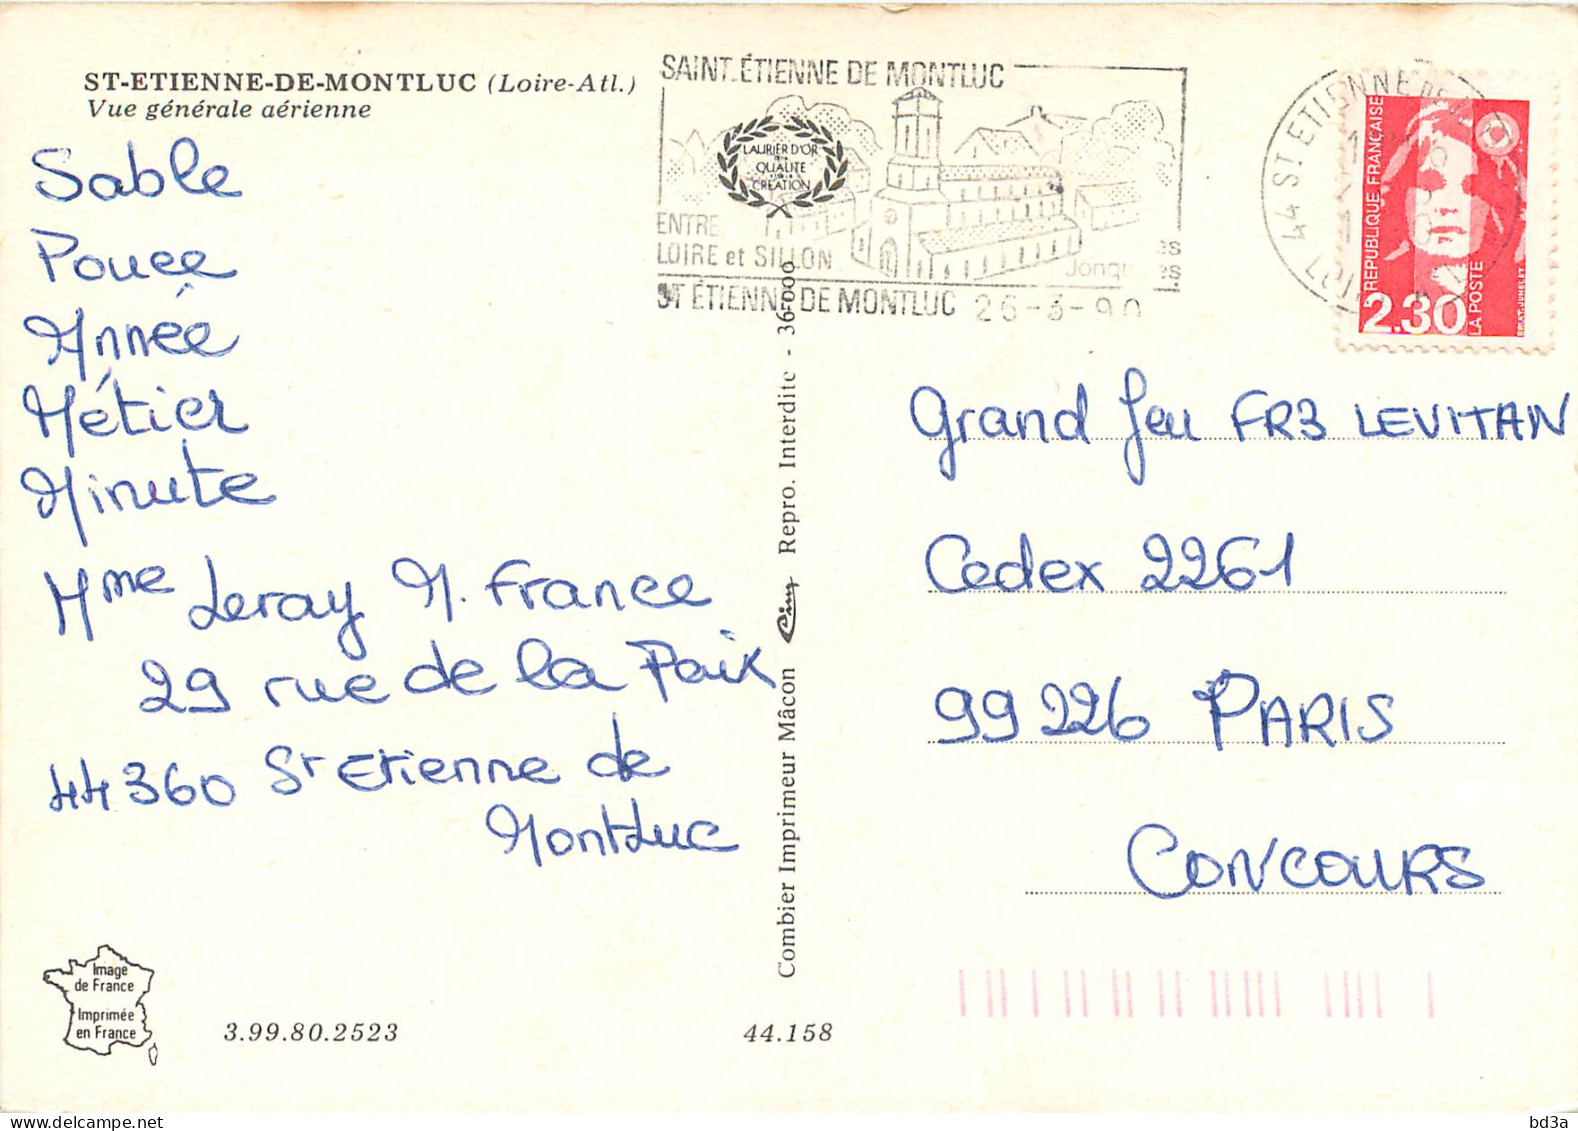 ST-ETIENNE-DE-MONTLUC (Loire-Atl.)
Vue générale aérienne
Sable
Pouce
Année
Métier
Minute
Mme Leray M. France
29 rue de la Paix
44360 St Etienne de
Montluc
Image
de France
Imprimée
en France
3.99.80.2523
44.158
Combier Imprimeur Mâcon Cim Repro. Interdite - 36-000
SAINT-ÉTIENNE DE MONTLUC
LAURIER D'OR
QUALITE
CREATION
ENTRE
LOIRE et SILLON
ST ÉTIENNE DE MONTLUC 26-3-90
44 ST ETIENNE DE
REPUBLIQUE FRANÇAISE
2.30
LA POSTE
Grand Jeu FR3 LEVITAN
Cedex 2261
99226 PARIS
CONCOURS
bd3a